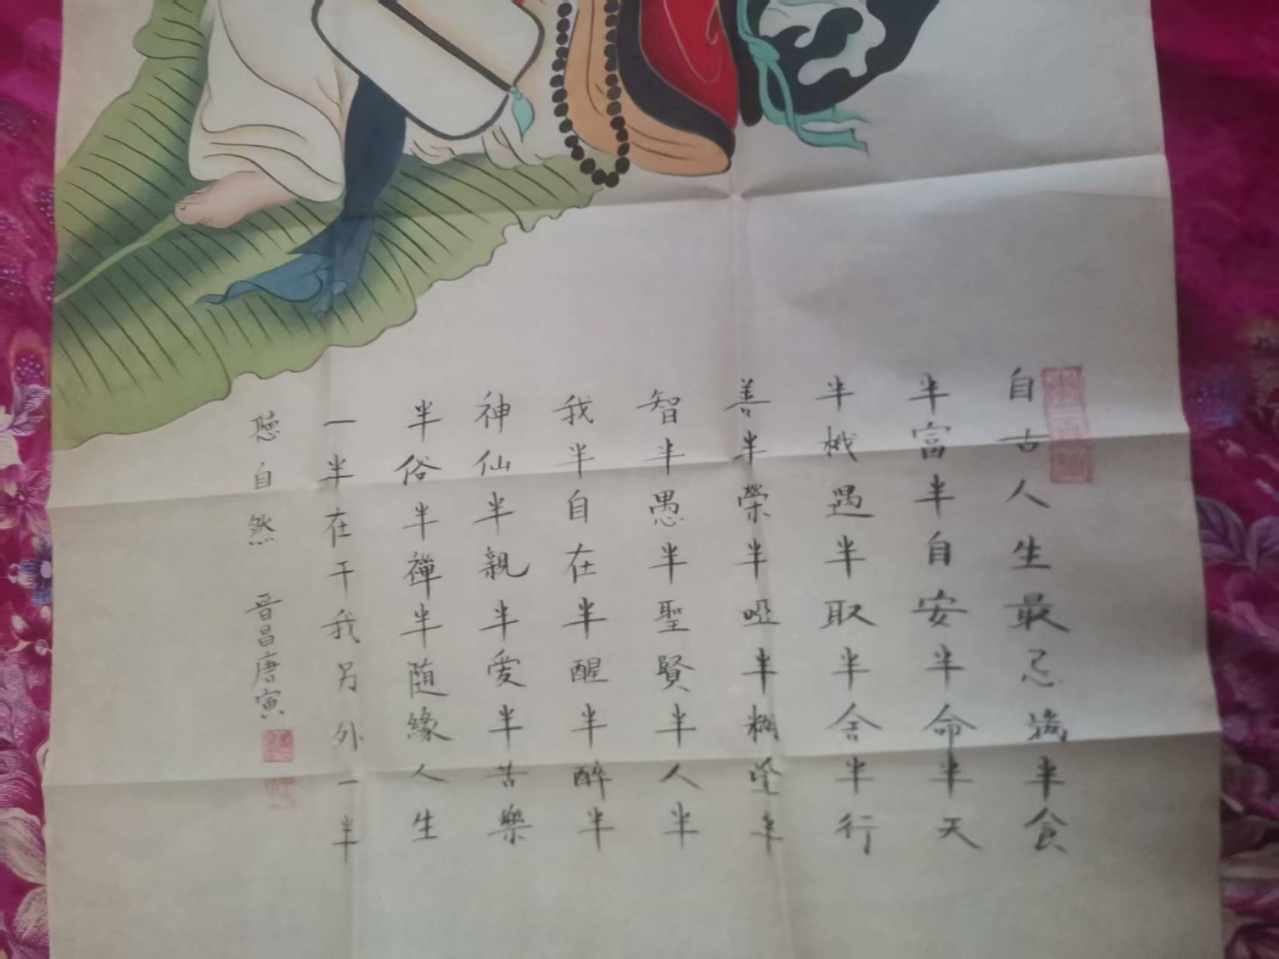 自古人生最忌滿半食
半富半自安半命半天
半機遇半取半舍半行
善半榮半啞半糊塗半
智半愚半聖賢半人半
我半自在半醒半醉半
神仙半親半愛半苦樂
半俗半禪半隨緣人生
一半在于我另外一半
聽自然 晉昌唐寅